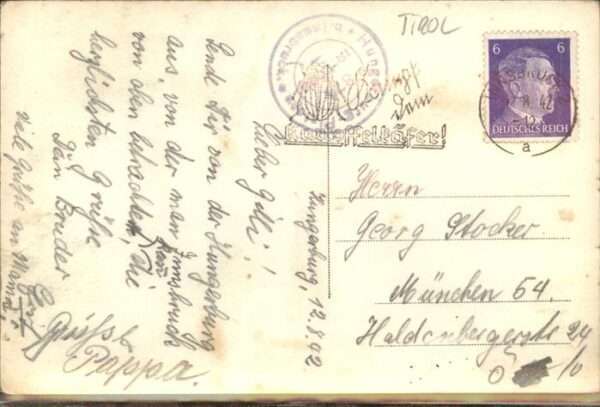 TIROL
Kampf
dem
Kartoffelkäfer!
6 6
DEUTSCHES REICH
INNSBRUCK
42
a
Hungerburg, 12.8.42
Lieber Gilli!
Sende Dir von der Hungerburg
aus, von der man Innsbruck
von oben betrachten kann, die
herzlichsten Grüße
Dein Bruder
Viele Grüße an Mama
Grüßt
Pappa.
Herrn
Georg Stocker
München 54.
Haldenbergerstr 24
0